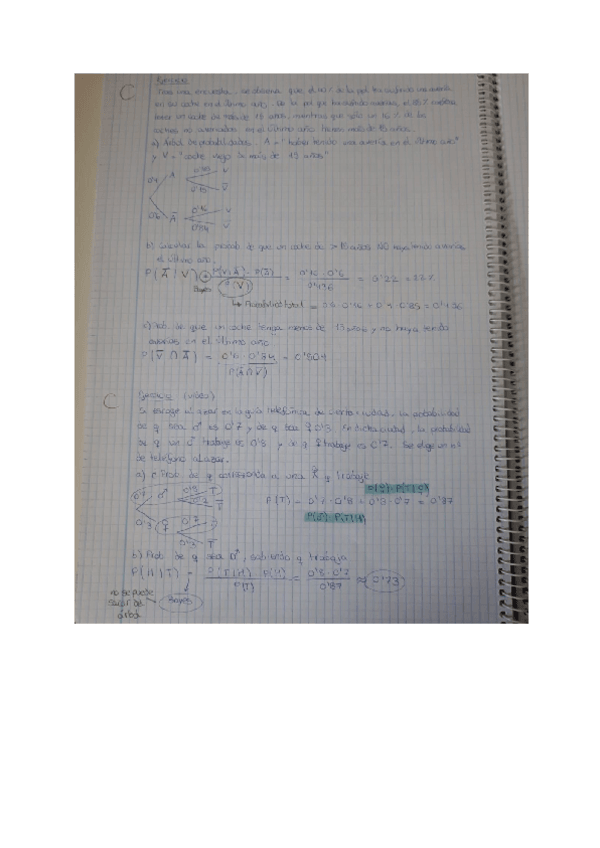 C
Ejercicio
Tras una encuesta, se observa que, el 40% de la pob. ha sufrido una avería
en su coche en el último año. De la pob que ha sufrido averías, el 85%
tiene un coche de más de 15 años, mientras que sólo un 16% de los
coches no averiados en el último año tienen más de 15 años.
a) Árbol de probabilidades. A = "haber tenido una avería en el último año"
y V = "coche viejo de más de 15 años"
0'4 A 0'85 V
0'15 V̅
0'6 A̅ 0'16 V
0'84 V̅
b) Calcular la probab. de que un coche de > 15 años NO haya tenido averías
el último año.
P(A̅ | V) = P(V|A̅) · P(A̅) / P(V) = 0'16 · 0'6 / 0'436 = 0'22 = 22%
Bayes
↳ Probabilidad total = 0'6 · 0'16 + 0'4 · 0'85 = 0'436
c) Prob. de que un coche tenga menos de 15 años y no haya tenido
averías en el último año
P(V̅ ∩ A̅) = 0'6 · 0'84 = 0'504
P(A̅ ∩ V̅)
C
Ejercicio (vídeo)
Se escoge al azar en la guía telefónica de cierta ciudad, la probabilidad
de q sea ♂ es 0'7 y de q sea ♀ 0'3. En dicha ciudad, la probabilidad
de q un ♂ trabaje es 0'8 y de q ♀ trabaje es 0'7. Se elige un nº
de teléfono al azar.
a) Prob de q corresponda a una y trabaje
P(♂) · P(T|♂)
0'7 ♂ 0'8 T
0'3 ♀ 0'7 T
0'3 T̅
P(T) = 0'7 · 0'8 + 0'3 · 0'7 = 0'87
b) Prob de q sea ♂, sabiendo q trabaja
P(H|T) = P(T|H) · P(H) / P(T) = 0'8 · 0'7 / 0'87 ≈ 0'73
no se puede
sacar del
árbol
Bayes